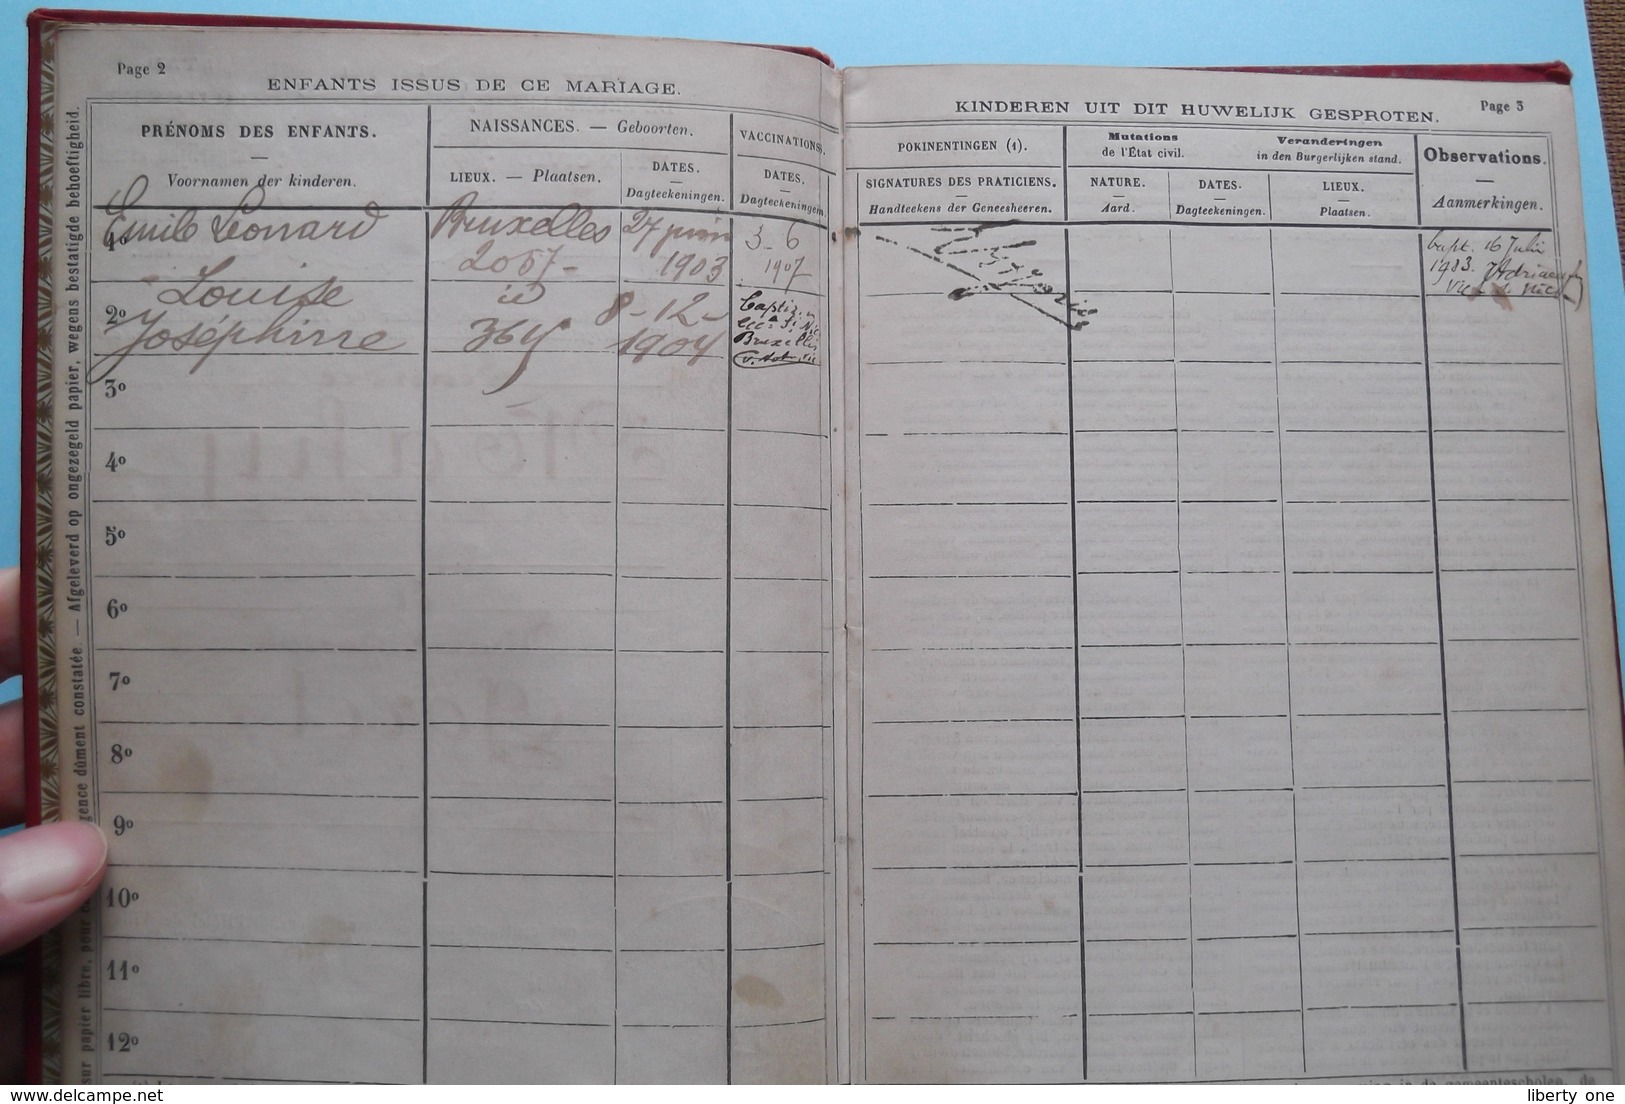 Page 2
ENFANTS ISSUS DE CE MARIAGE.
PRÉNOMS DES ENFANTS.
Voornamen der kinderen.
NAISSANCES. — Geboorten.
LIEUX. — Plaatsen.
DATES.
Dagteekeningen.
VACCINATIONS.
DATES.
Dagteekeningen.
1º
Emile Léonard
Bruxelles
2057-
27 juin
1903
3-6
1907
2º
Louise
Joséphine
id
364
8-12-
1904
Bruxelles
3º
4º
5º
6º
7º
8º
9º
10º
11º
12º
Afgeleverd op ongezegeld papier, wegens bestatigde behoeftigheid.
sur papier libre, pour
gence dûment constatée. —
Page 3
KINDEREN UIT DIT HUWELIJK GESPROTEN.
POKINENTINGEN (1).
SIGNATURES DES PRATICIENS.
Handteekens der Geneesheeren.
Mutations
de l'État civil.
Veranderingen
in den Burgerlijken stand.
NATURE.
Aard.
DATES.
Dagteekeningen.
LIEUX.
Plaatsen.
Observations.
Aanmerkingen.
bapt. 16 Juli
1903.
liberty one